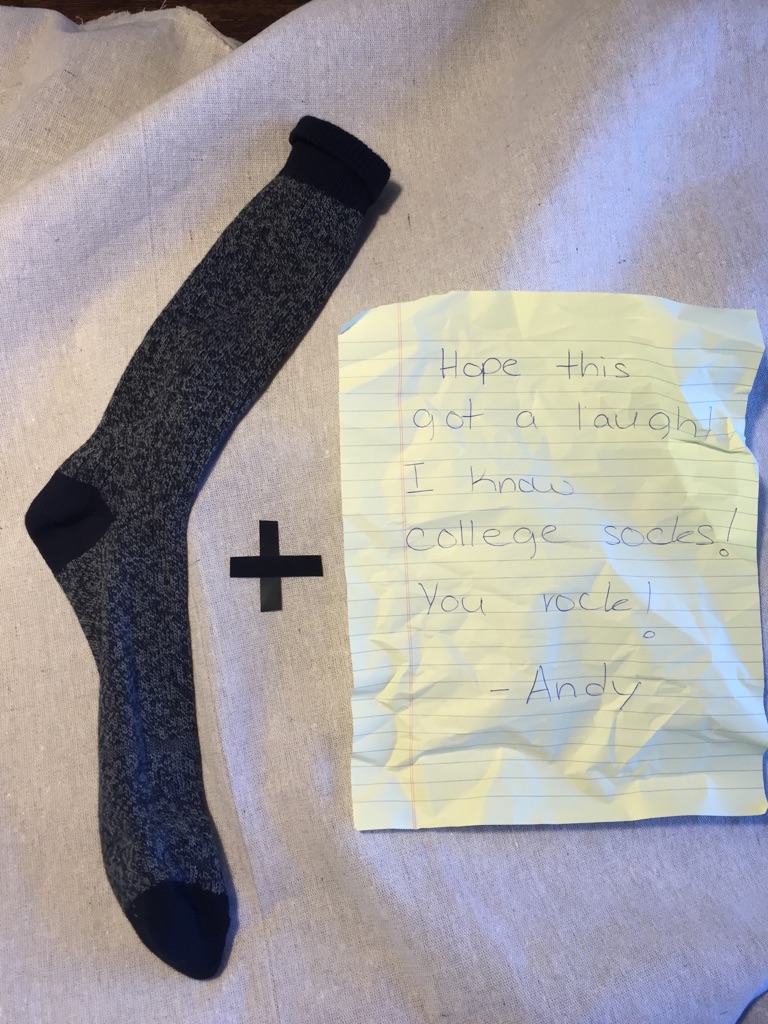 Hope this
got a laugh!
I know
college socks!
You rock!
- Andy